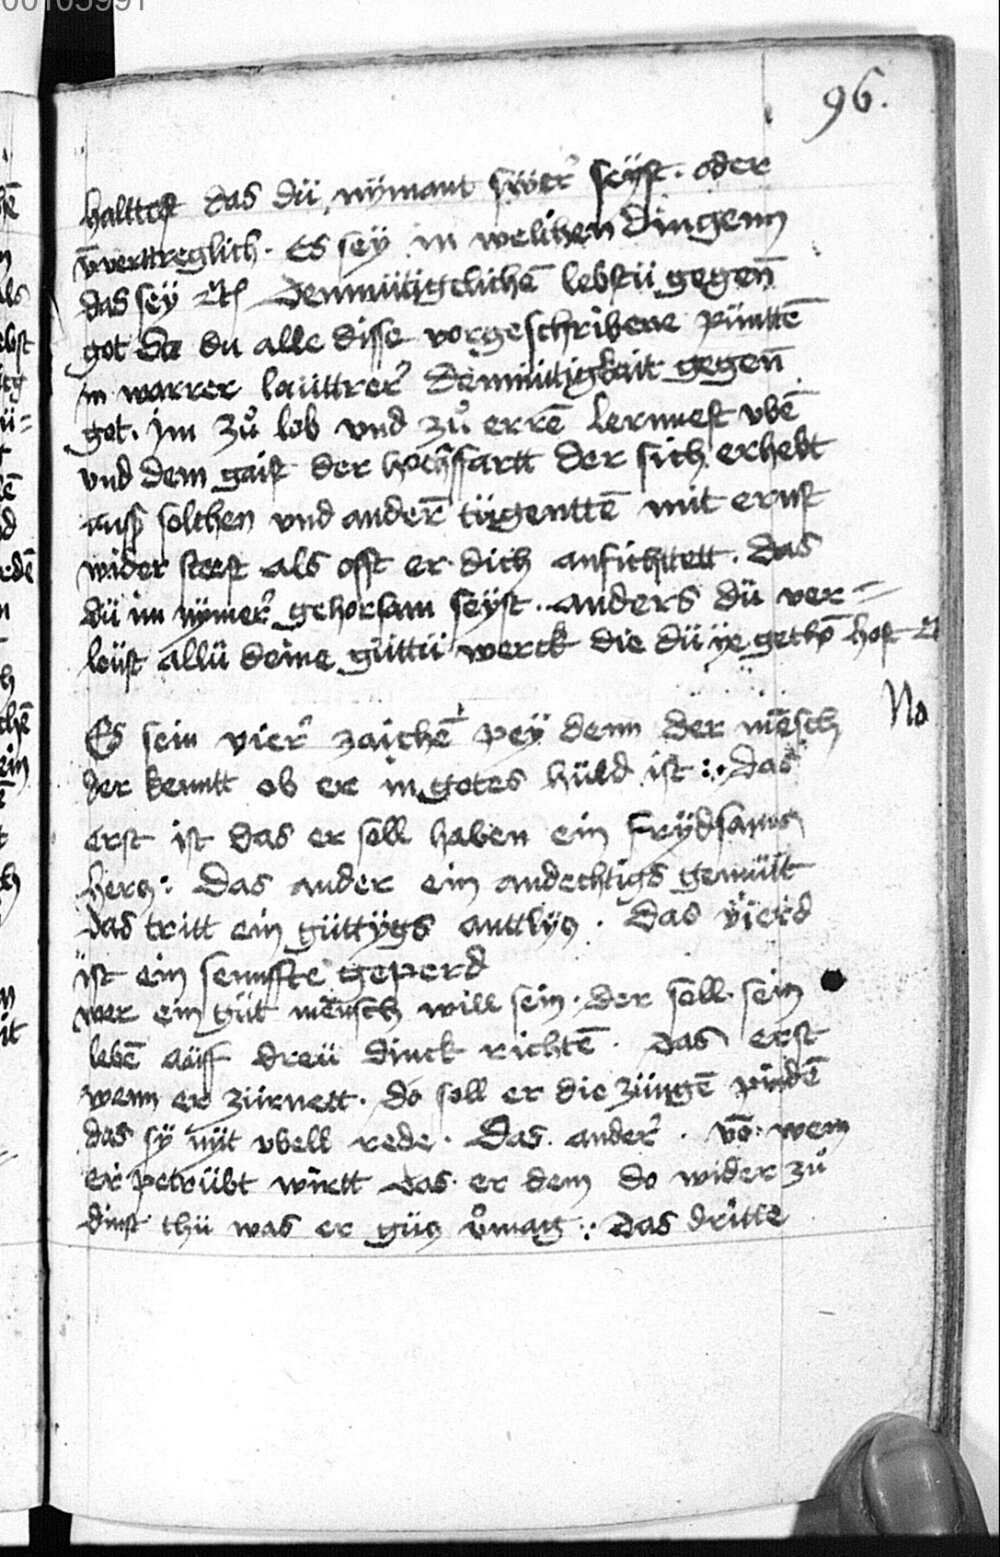 00103991
96.
halttest das dü nÿmant swer seÿst · oder
vnverttreglich · Es seÿ in welichen dingenn
das seÿ etc Demmütigclichē lebstü gegen̄
got Da du alle disse vorgeschribene püncttē
in warrer lauttrer Demmütigkait gegen̄
got · jm zů lob vnd zů errē lernnest vbē
vnd dem gaist der hochffartt der sich erhebt
auß solchen vnd ander̄ tügenttē mit ernst
wider stest als offt er dich anfichttett · Das
dü im nÿmer gehorsam seÿst · anders dü ver=
leüst allü deine güttü werck die dü ÿe gethō hast etc
Es sein vier zaichē peÿ denn der mēsch
der kenntt ob er in gotes hüld ist :· Das
erst ist das er soll haben ein frÿdsams
hercz : Das ander ein andechtigs gemütt
Das tritt ein güttÿgs anttlÿcz · Das vierd
ist ein sennffte geperd
No
wer ein güt mensch will sein · der soll sein
lebē aüff dreü dinck richtē · Das erst
wenn er zürnett · do soll er die züngē pindē
das sÿ nÿt vbell rede · Das ander · vō wem
er petrübt wirtt das er dem do wider zů
dinst thü was er gücz v̄mag :· Das dritte